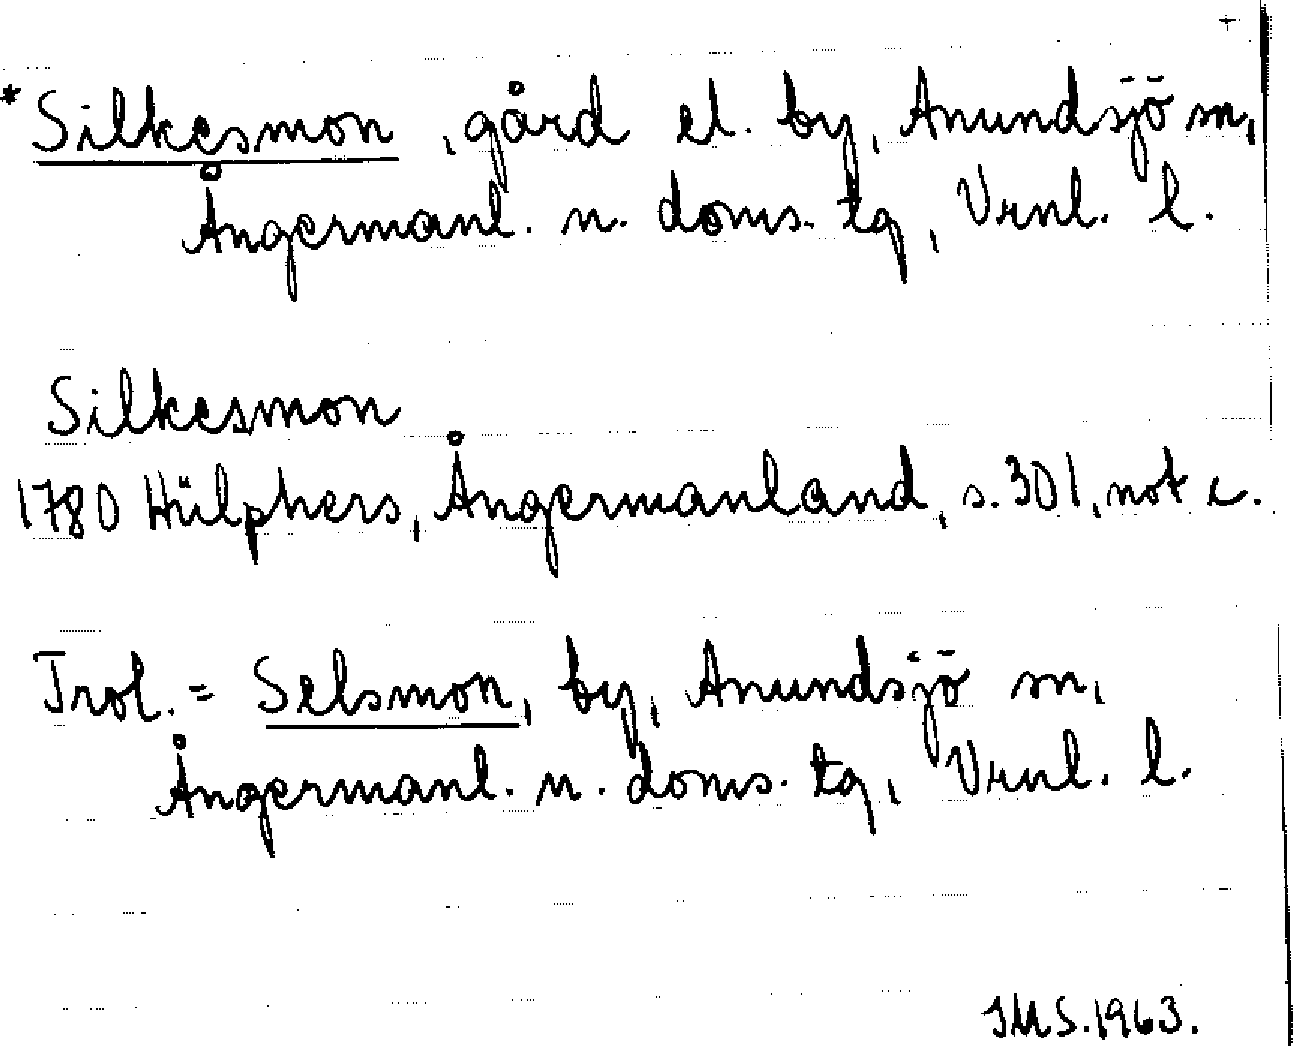 +
*Silkesmon, gård el. by, Anundsjö sn,
Ångermanl. n. doms. tg, Vrnl. l.
Silkesmon
1780 Hülphers, Ångermanland, s. 301, not c.
Trol. = Selsmon, by, Anundsjö sn,
Ångermanl. n. doms. tg, Vrnl. l.
IMS. 1963.